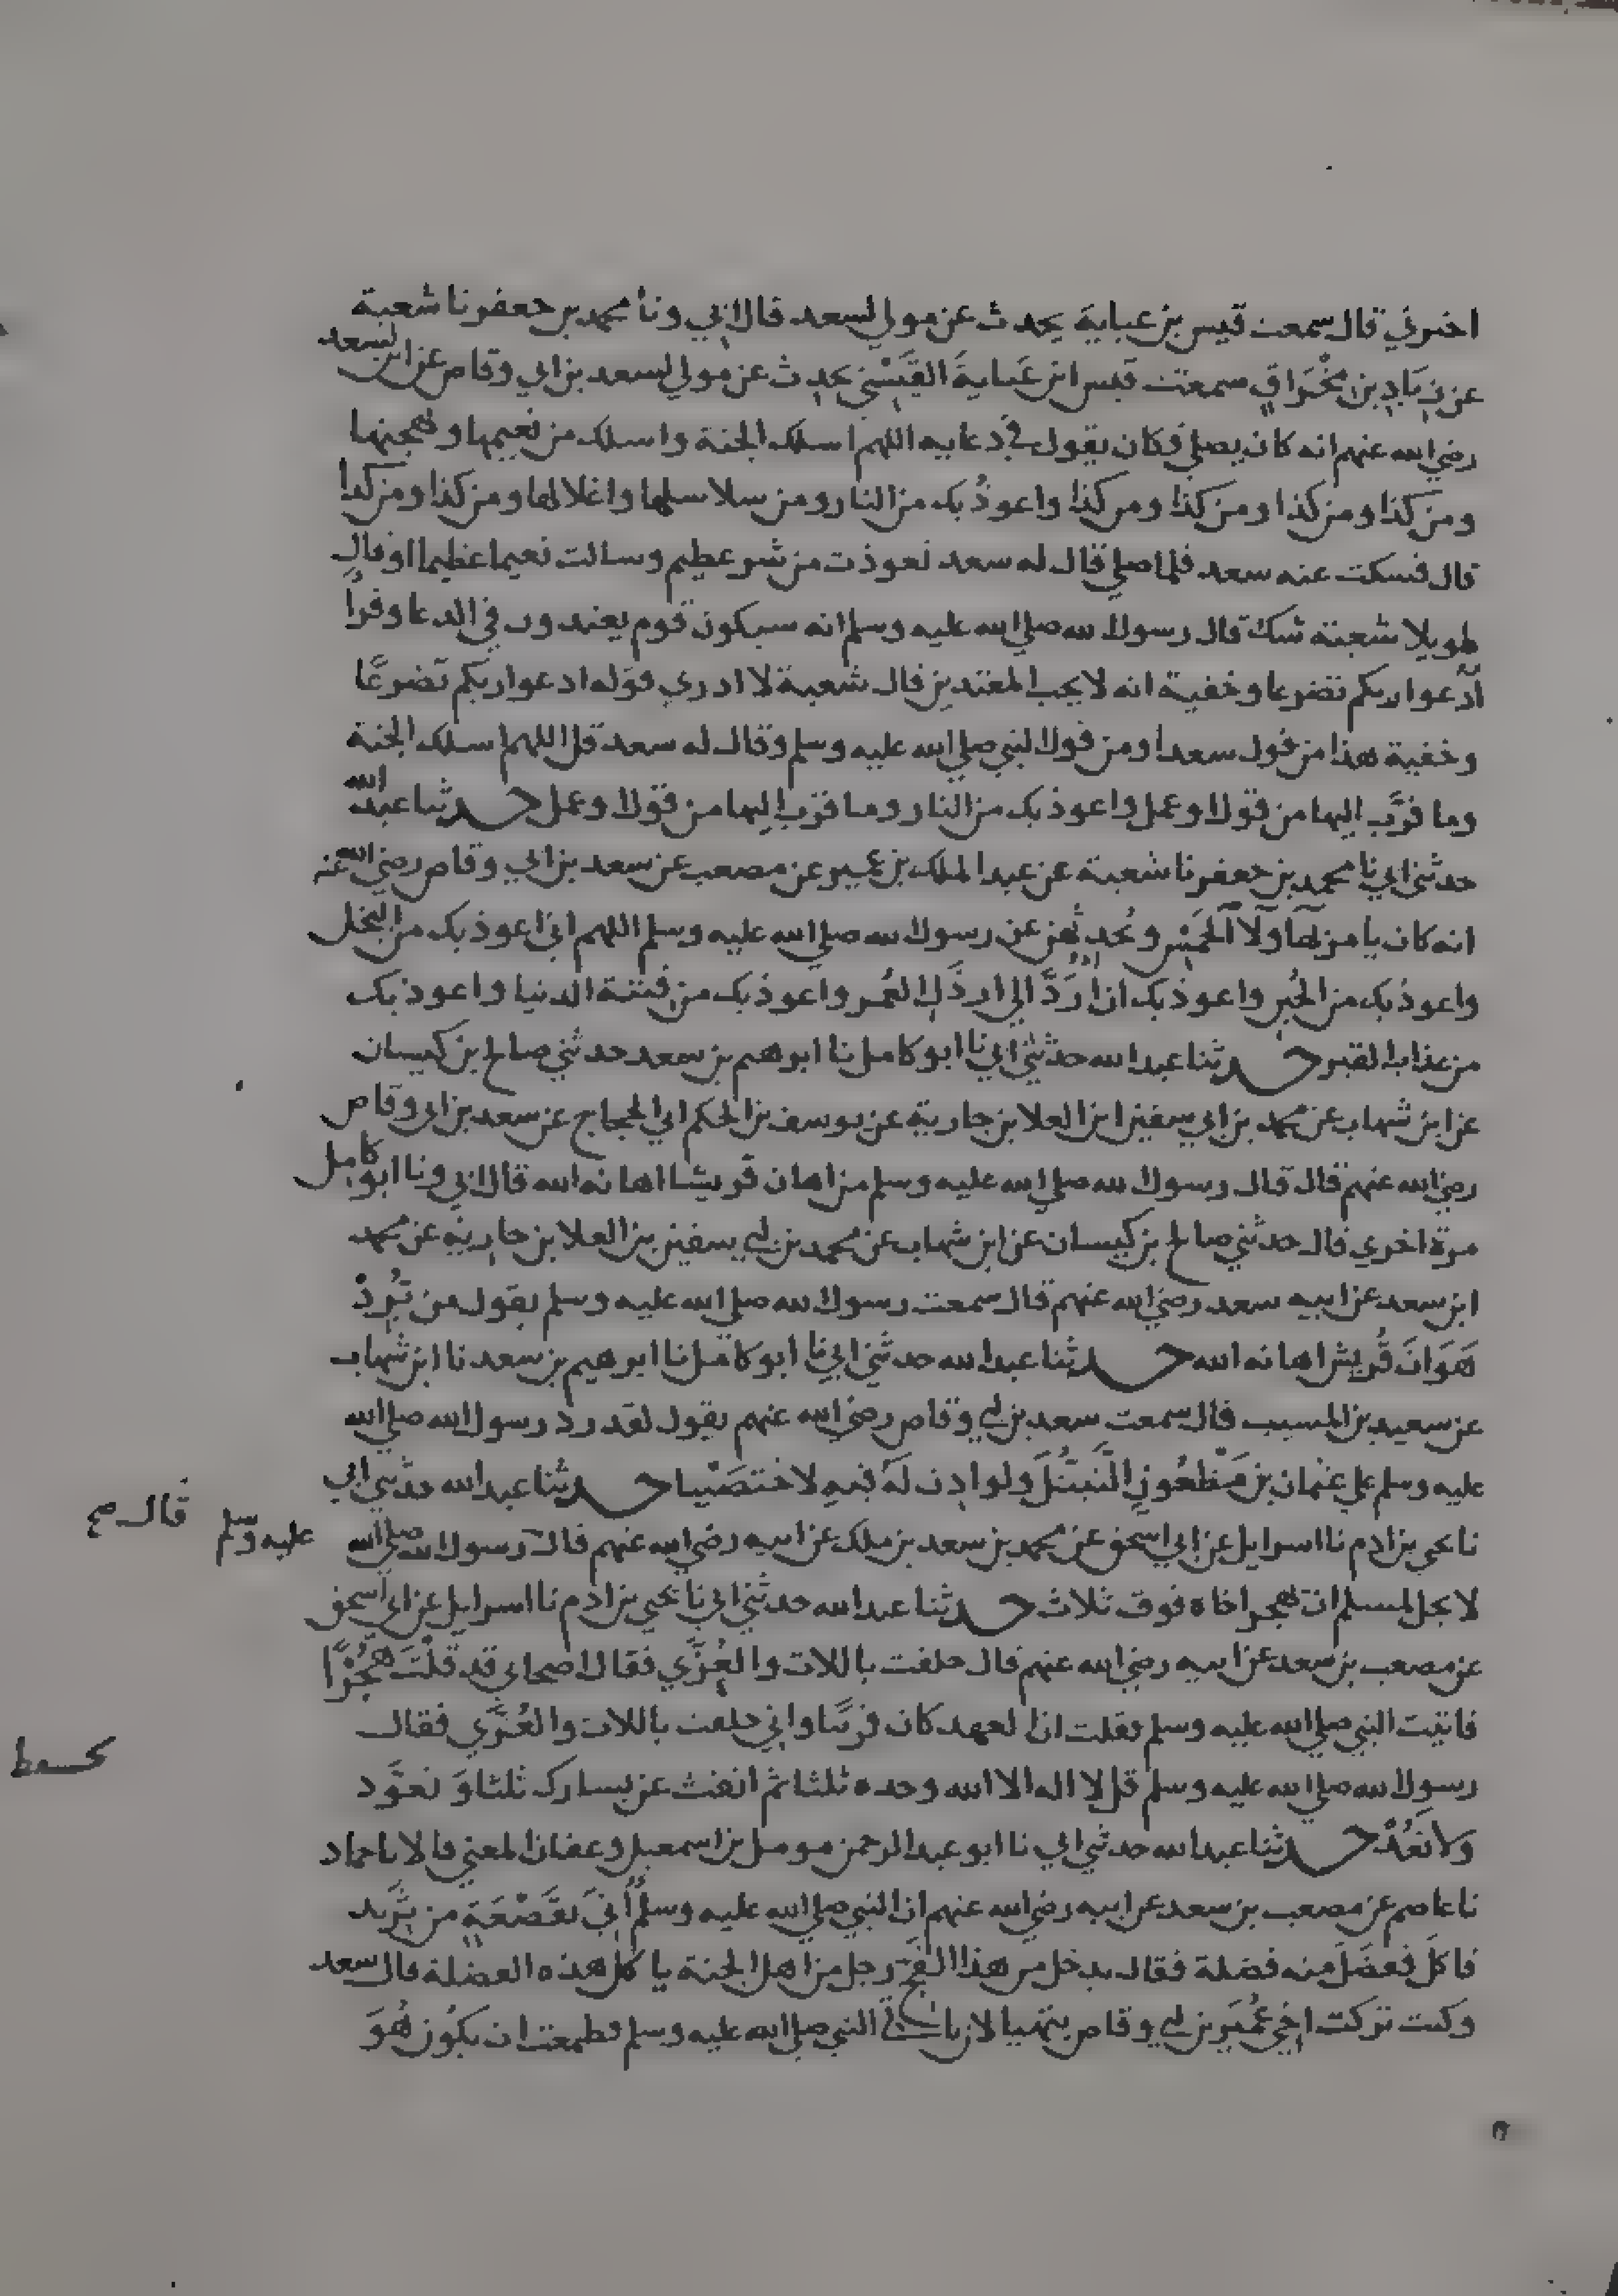 اخبرني قال سمعت قيس بن عباية يحدث عن مولى لسعد قال ابي ونا محمد بن جعفر نا شعبة
عن زِيَادِ بن مِخْرَاقٍ سمعت قيس ابن عَبايةَ القَيْسيّ يحدث عن مولى لسعد بن ابي وقاص عن ابن لسعد
رضي الله عنهم انه كان يصلي فكان يقول في دعايه اللهم اسلك الجنة واسلك من نعيمها وبهجتها
ومن كذا ومن كذا ومن كذا ومن كذا واعوذُ بك من النار ومن سلاسلها واغلالها ومن كذا ومن كذا
قال فسكت عنه سعد فلما صلى قال له سعد تعوذت من شر عظيم وسالت نعيما عظيما او قال
طويلا شعبة شك قال رسول الله صلى الله عليه وسلم انه سيكون قوم يعتدون في الدعا وقرا
اُدْعوا ربكم تضرعا وخفية انه لا يحب المعتدين قال شعبة لا ادري قوله ادعوا ربكم تضرعًا
وخفية هذا من قول سعد او من قول النبي صلى الله عليه وسلم وقال له سعد قل اللهم اسلك الجنة
وما قرَّب اليها من قول او عمل واعوذ بك من النار وما قرّب اليها من قول او عمل حدثنا عبد الله
حدثني ابي نا محمد بن جعفر نا شعبة عن عبد الملك بن عمير عن مصعب عن سعد بن ابي وقاص رضي الله عنه
انه كان يامر بهآولآ الخَمْس ويُحدثُهن عن رسول الله صلى الله عليه وسلم اللهم اني اعوذ بك من البخل
واعوذ بك من الجُبن واعوذ بك ان اُرَدَّ الى ارذَلِ العُمر واعوذ بك من فتنة الدنيا واعوذ بك
من عذاب القبر حدثنا عبد الله حدثني ابي نا ابو كامل نا ابرهيم بن سعد حدثني صالح بن كيسان
عن ابن شهاب عن محمد بن ابي سفين ابن العلا بن جارية عن يوسف بن الحكم ابي الحجاج عن سعد بن ابي وقاص
رضي الله عنهم قال قال رسول الله صلى الله عليه وسلم من اهان قريشا اهانه الله قال ابي ونا ابو كامل
مرة اخرى قال حدثني صالح بن كيسان عن ابن شهاب عن محمد بن ابي سفين بن العلا بن جارية عن محمد
ابن سعد عن ابيه سعد رضي الله عنهم قال سمعت رسول الله صلى الله عليه وسلم يقول من يُرِدْ
هَوَانَ قُريش اهانه الله حدثنا عبد الله حدثني ابي نا ابو كامل نا ابرهيم بن سعد نا ابن شهاب
عن سعيد بن المسيب قال سمعت سعد بن ابي وقاص رضي الله عنهم يقول لقد رد رسول الله صلى الله
عليه وسلم على عثمان بن مَظْعُونٍ التَّبتُّلَ ولو اذِن لَهُ فيهِ لاختصَيْنا حدثنا عبد الله حدثني ابي
نا يحيى بن ادم نا اسرايل عن ابي اسحق عن محمد بن سعد بن ملك عن ابيه رضي الله عنهم قال رسول الله صلى الله
عليه وسلم
قال صح
لا يحل لمسلم ان يهجر اخاه فوق ثلاث حدثنا عبد الله حدثني ابي نا يحيى بن ادم نا اسرايل عن ابي اسحق
عن مصعب بن سعد عن ابيه رضي الله عنهم قال حلفت باللات والعُزَّى فقال اصحابي قد قُلْتَ هُجْرًا
فاتيت النبي صلى الله عليه وسلم فقلت ان العهد كان قريبًا واني حلفت باللات والعُزَّى فقال
رسول الله صلى الله عليه وسلم قل لا اله الا الله وحده ثلثا ثم انفث عن يسارك ثلثا وَتعوَّذ
ولا تَعُدْ حدثنا عبد الله حدثني ابي نا ابو عبد الرحمن مومل بن اسمعيل وعفان المعنى قالا نا حماد
نا عاصم عن مصعب بن سعد عن ابيه رضي الله عنهم ان النبي صلى الله عليه وسلم اُتيَ بقَصْعَةٍ من ثَرِيد
فاكلَ ففضَلَ منه فضلة فقال يدخل من هذا الفَجّ رجل من اهل الجنة ياكل هذه الفضلة قال سعد
وكنت تركت اخي عُمَيَر بن ابي وقاص يتهيا لان ياتي النبي صلى الله عليه وسلم فطمعت ان يكُون هُوَ